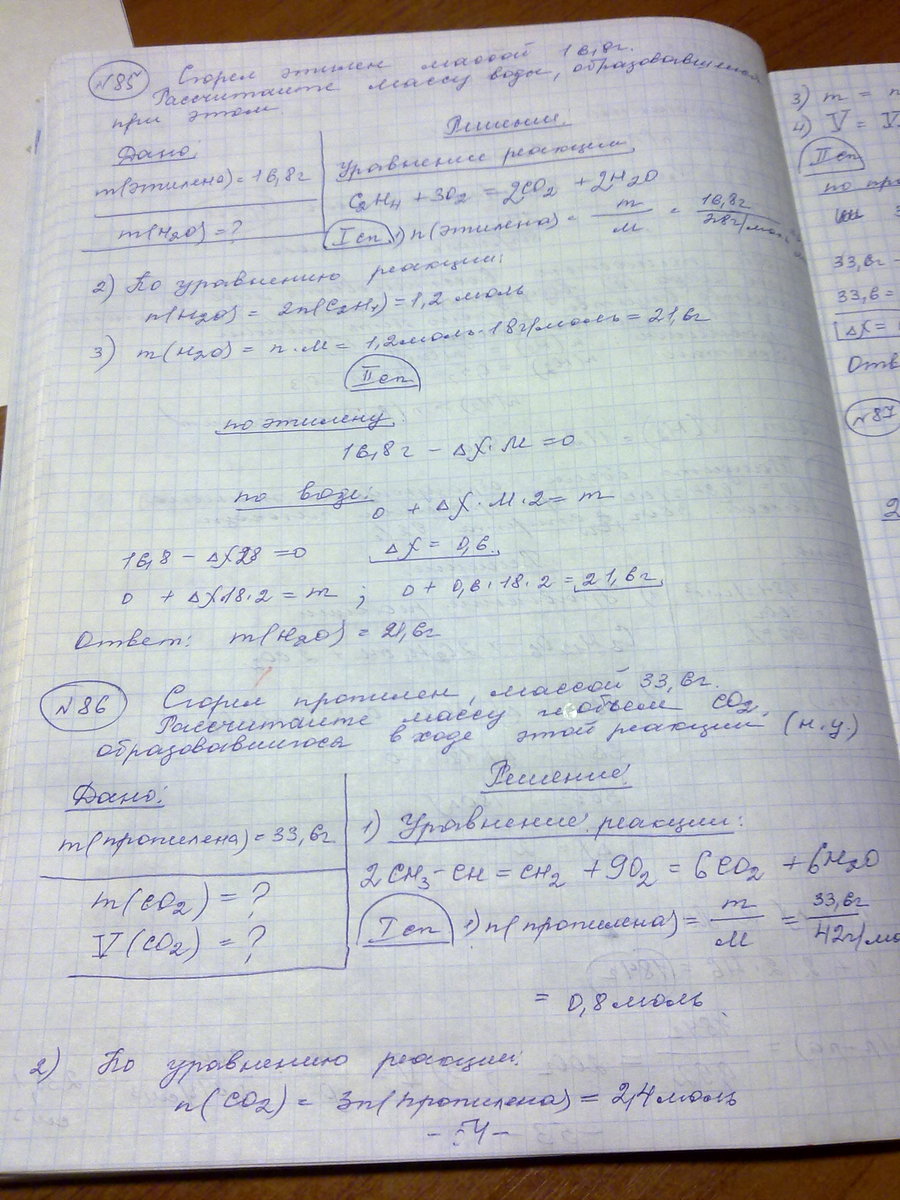 №85 Сгорел этилен массой 16,8г.
Рассчитайте массу воды, образовавшейся
при этом.
Дано:
m(этилена) = 16,8г
m(H2O) = ?
Решение.
Уравнение реакции.
C2H4 + 3O2 = 2CO2 + 2H2O
I сп 1) n(этилена) = m/M = 16,8г/28г/моль
2) По уравнению реакции:
n(H2O) = 2n(C2H4) = 1,2 моль
3) m(H2O) = n·M = 1,2моль·18г/моль = 21,6г
II сп
по этилену
16,8г - ΔX·M = 0
по воде:
0 + ΔX·M·2 = m
16,8 - ΔX28 = 0 ΔX = 0,6.
0 + ΔX18·2 = m ; 0 + 0,6·18·2 = 21,6г.
Ответ: m(H2O) = 21,6г
№86 Сгорел пропилен, массой 33,6г.
Рассчитайте массу и объем CO2,
образовавшегося в ходе этой реакции. (н.у.)
Дано:
m(пропилена) = 33,6г
m(CO2) = ?
V(CO2) = ?
Решение:
1) Уравнение реакции:
2CH3-CH=CH2 + 9O2 = 6CO2 + 6H2O
I сп 1) n(пропилена) = m/M = 33,6г/42г/мо
= 0,8 моль
2) По уравнению реакции:
n(CO2) = 3n(пропилена) = 2,4 моль
- 54 -
3) m = n
4) V = V
II сп
по про
33,6г -
33,6 =
ΔX =
Отв
№87
2